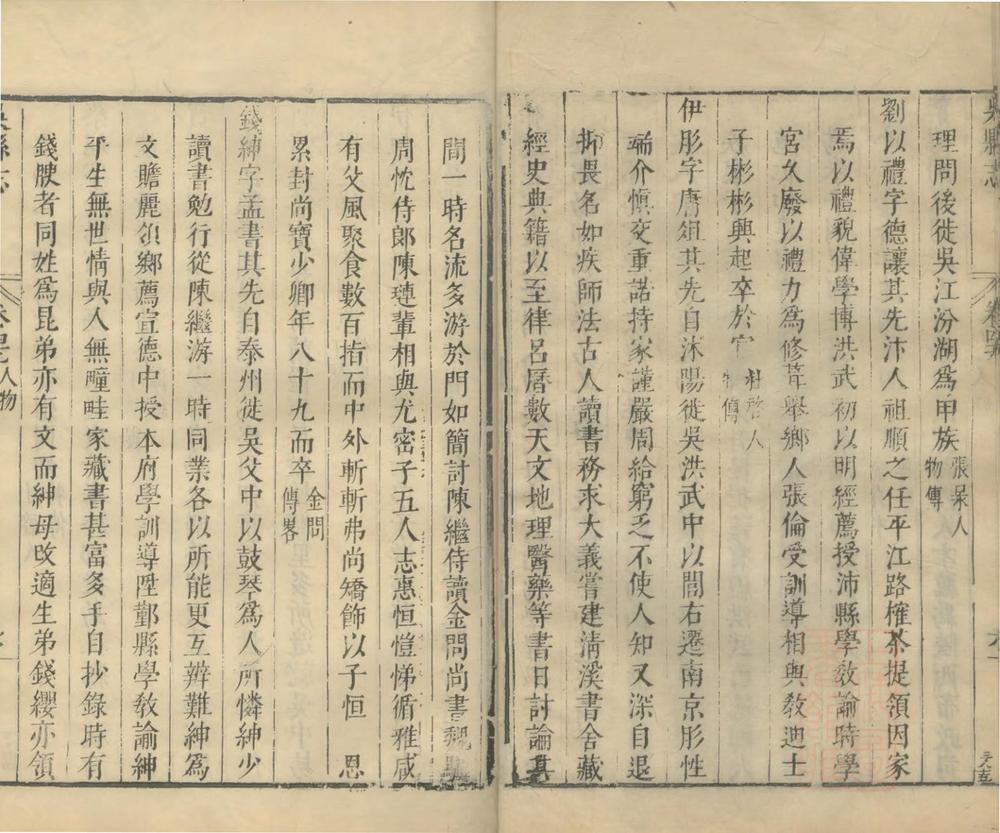 吳縣志
理問後徙吳江汾湖爲甲族張昊人物傳
劉以禮字德讓其先汴人祖順之任平江路榷茶提領因家
焉以禮貌偉學博洪武初以明經薦授沛縣學敎諭時學
宮久廢以禮力爲修葺舉鄉人張倫受訓導相與敎迪士
子彬彬興起卒於官
伊彤字唐俎其先自沭陽徙吳洪武中以閭右遷南京彤性
端介愼交重諾持家謹嚴周給窮乏不使人知又深自退
抑畏名如疾師法古人讀書務求大義嘗建淸溪書舍藏
經史典籍以至律呂曆數天文地理醫藥等書日討論其
間一時名流多游於門如簡討陳繼侍讀金問尚書魏驥
周忱侍郎陳璉輩相與尤密子五人志惠恒愷悌循雅咸
有父風聚食數百指而中外斬斬弗尚矯飾以子恒 恩
累封尚寶少卿年八十九而卒金問傳畧
錢紳字孟書其先自泰州徙吳父中以鼓琴爲人所憐紳少
讀書勉行從陳繼游一時同業各以所能更互辨難紳爲
文贍麗領鄉薦宣德中授本府學訓導陞鄞縣學敎諭紳
平生無世情與人無畛畦家藏書甚富多手自抄錄時有
錢腴者同姓爲昆弟亦有文而紳母改適生弟錢纓亦領
吳縣志 人物